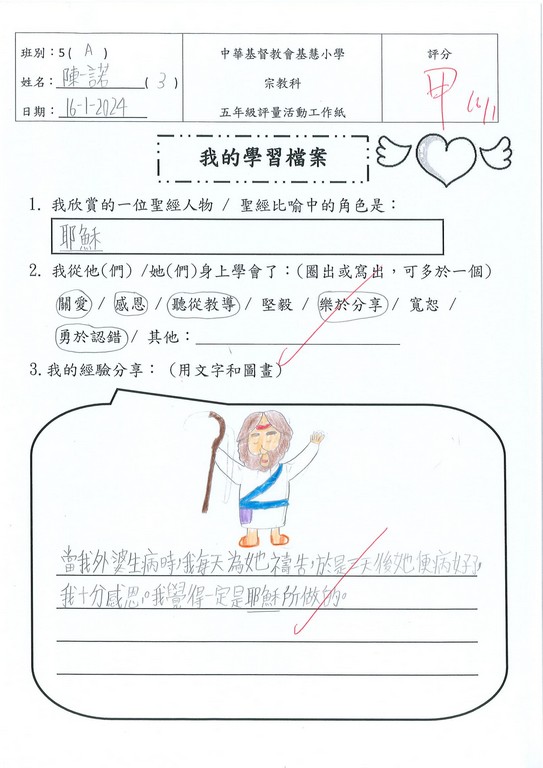 班別：5( A )
姓名：陳一諾 ( 3 )
日期：16-1-2024
中華基督教會基慧小學
宗教科
五年級評量活動工作紙
評分
甲 16/1
我的學習檔案
1. 我欣賞的一位聖經人物 / 聖經比喻中的角色是：
耶穌
2. 我從他(們) /她(們)身上學會了：(圈出或寫出，可多於一個)
關愛 / 感恩 / 聽從教導 / 堅毅 / 樂於分享 / 寬恕 /
勇於認錯 / 其他：
3. 我的經驗分享： (用文字和圖畫)
當我外婆生病時，我每天為她禱告，於是三天後她便病好了，
我十分感恩。我覺得一定是耶穌所做的。